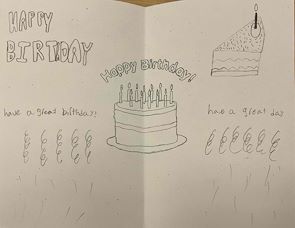 HAPPY
BIRTHDAY
Happy Birthday!
have a great birthday!
have a great day